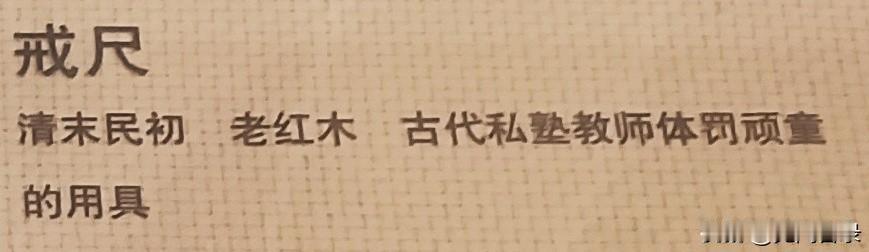 戒尺
清末民初 老红木 古代私塾教师体罚顽童
的用具